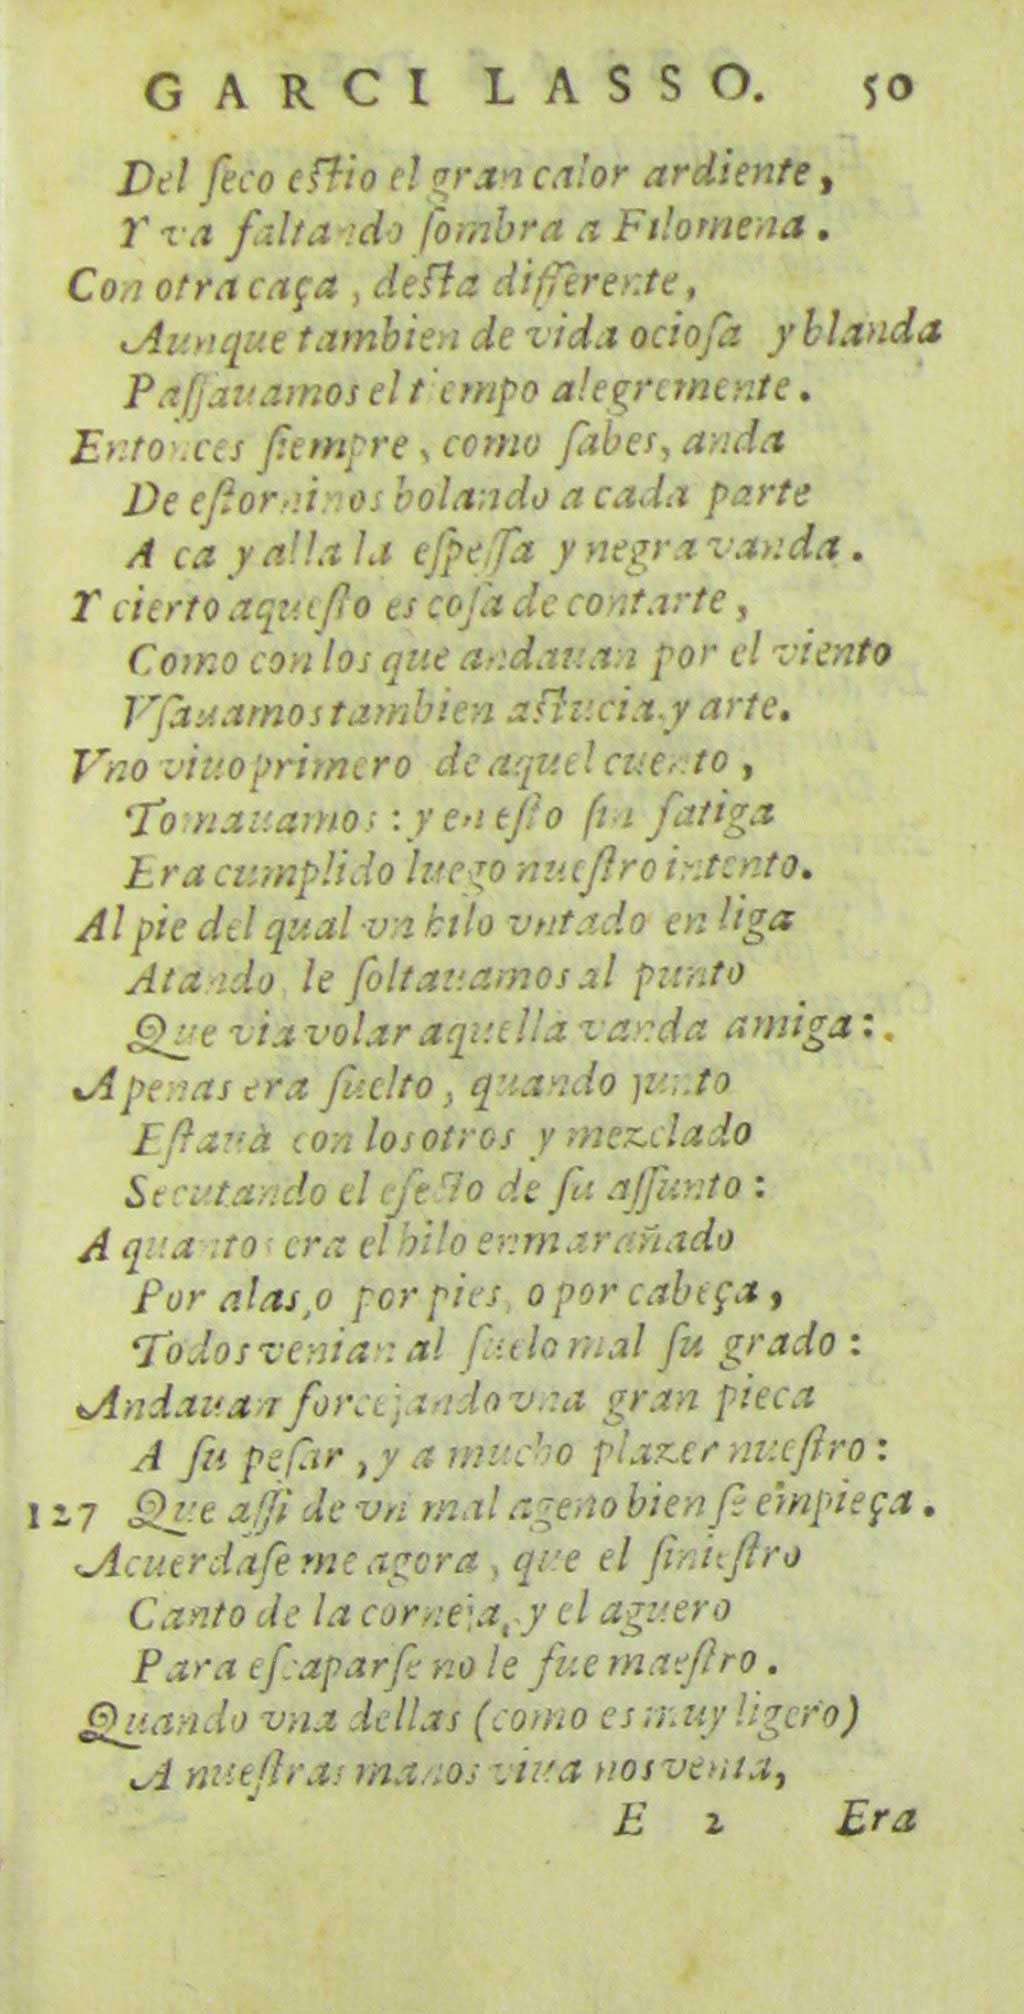 GARCI LASSO. 50
Del ſeco eſtio el gran calor ardiente,
Y va faltando ſombra a Filomena.
Con otra caça, deſta differente,
Aunque tambien de vida ocioſa y blanda
Paſſauamos el tiempo alegremente.
Entonces ſiempre, como ſabes, anda
De eſtorninos bolando a cada parte
A ca y alla la eſpeſſa y negra vanda.
Y cierto aqueſto es coſa de contarte,
Como con los que andauan por el viento
Vſauamos tambien aſtucia, y arte.
Vno viuo primero de aquel cuento,
Tomauamos: y en eſto ſin fatiga
Era cumplido luego nueſtro intento.
Al pie del qual vn hilo vntado en liga
Atando, le ſoltauamos al punto
Que via volar aquella vanda amiga:.
Apenas era ſuelto, quando junto
Eſtaua con los otros y mezclado
Secutando el efecto de ſu aſſunto:
A quantos era el hilo enmarañado
Por alas, o por pies, o por cabeça,
Todos venian al ſuelo mal ſu grado:
Andauan forcejando vna gran pieca
A ſu peſar, y a mucho plazer nueſtro:
127 Que aſſi de vn mal ageno bien ſe empieça.
Acuerdaſe me agora, que el ſinieſtro
Canto de la corneja, y el aguero
Para eſcaparſe no le fue maeſtro.
Quando vna dellas (como es muy ligero)
A nueſtras manos viua nos venia,
E 2 Era